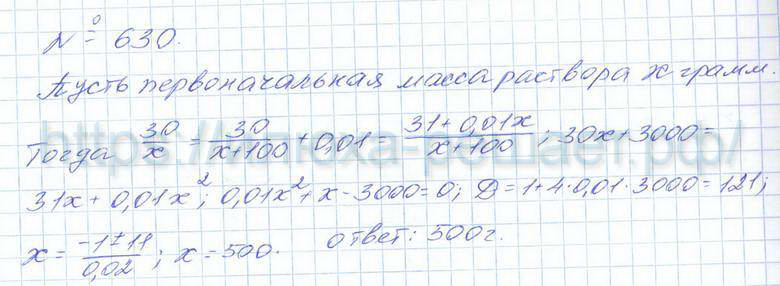 № 630.
Пусть первоначальная масса раствора x грамм.
Тогда 30/x = 30/(x+100) + 0,01 = (31+0,01x)/(x+100); 30x+3000=
31x + 0,01x²; 0,01x²+x-3000=0; D=1+4·0,01·3000=121;
x = (-1±11)/0,02; x=500. Ответ: 500г.